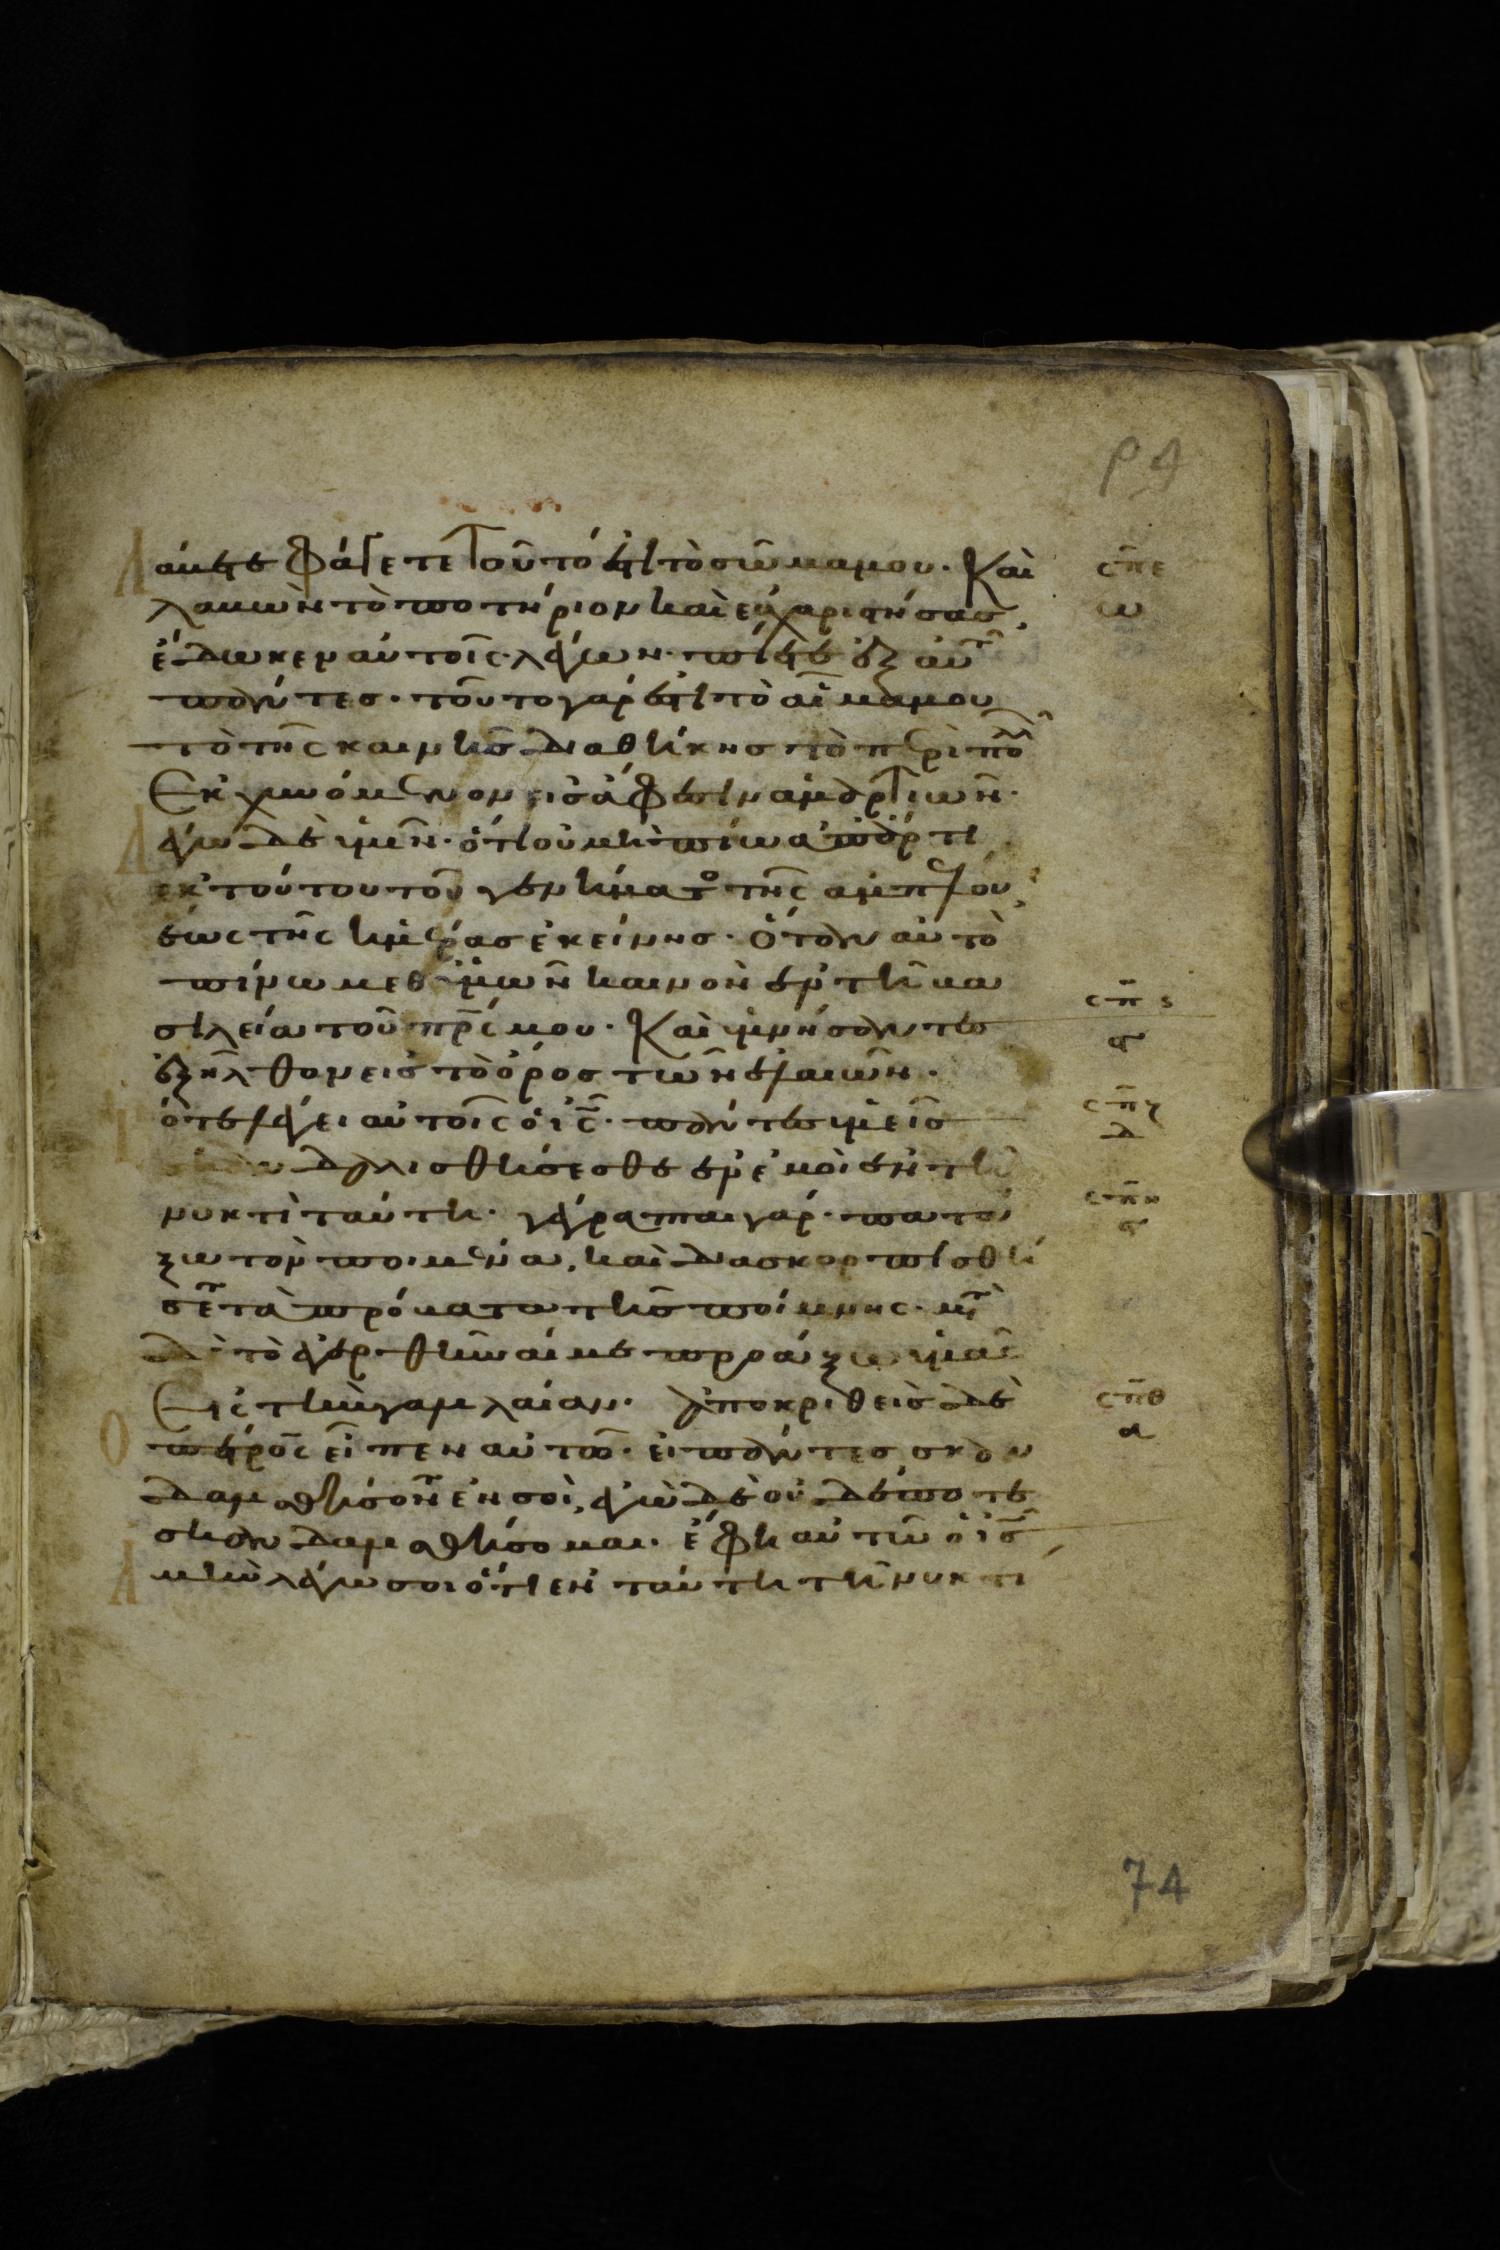 ρ4
Λάβετε φάγετε τοῦτό ἐστι τὸ σῶμα μου. Καὶ σπε
λαβὼν τὸ ποτήριον καὶ εὐχαριστήσας,
ἔδωκεν αὐτοῖς λέγων. πίετε ἐξ αὐτ
πάντες. τοῦτο γάρ ἐστι τὸ αἷμα μου
τὸ τῆς καινῆς διαθήκης τὸ περὶ πολλ
Ἐκχυνόμενον εἰς ἄφεσιν ἁμαρτιῶν.
Λέγω δὲ ὑμῖν. ὅτι οὐ μὴ πίω ἀπάρτι
ἐκ τούτου τοῦ γεννήματο τῆς ἀμπέλου,
ἕως τῆς ἡμέρας ἐκείνης. Ὅταν αὐτὸ
πίνω μεθ ὑμῶν καινὸν ἐν τῆ βα
σιλεία τοῦ πρς μου. Καὶ ὑμνήσαντες σπς
ἐξῆλθον εἰς τὸ ὄρος τῶν ἐλαιῶν. α
Τότε λέγει αὐτοῖς ὁ ις. πάντες ὑμεῖς σπζ
σκανδαλισθήσεσθε ἐν ἐμοὶ ἐν τῆ δ
νυκτὶ ταύτη. γέγραπται γάρ. πατά σπη
ξω τὸν ποιμένα, καὶ διασκορπισθή
σετ τὰ πρόβατα τῆς ποίμνης. μετ
δὲ τὸ ἐγερθῆναί με προάξω ὑμᾶς
Εἰς τὴν γαλιλαίαν. Ἀποκριθεὶς δὲ σπθ
Ὁ πέτρος εἶπεν αὐτῶ. εἰ πάντες σκαν α
δαλισθήσοντ ἐν σοὶ, ἐγὼ δὲ οὐδέποτε
σκανδαλισθήσομαι. ἔφη αὐτῶ ὁ ις
Ἀμὴν λέγω σοι ὅτι ἐν ταύτη τῆ νυκτὶ
74